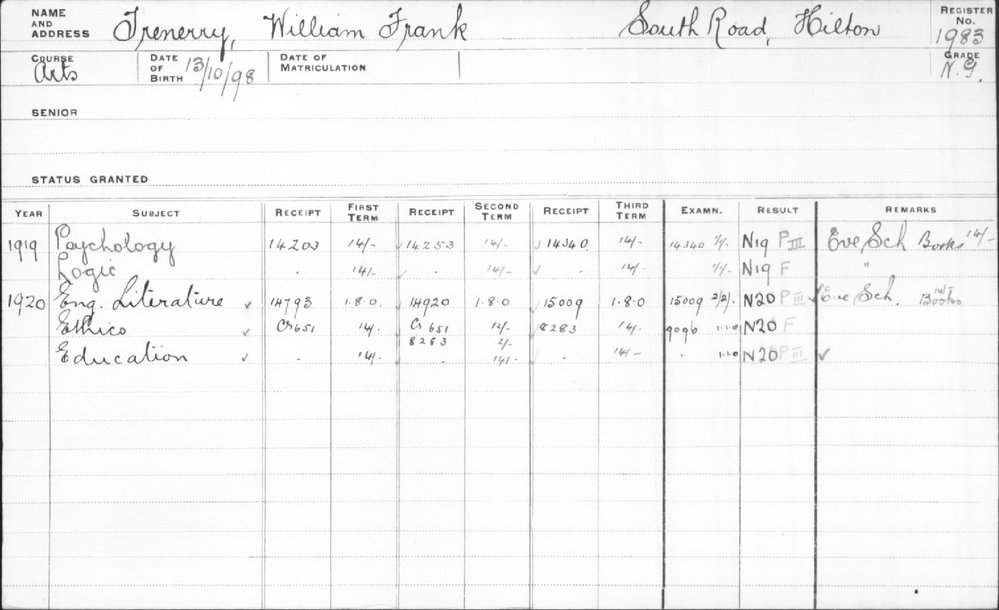 NAME AND ADDRESS Trenerry, William Frank South Road, Hilton REGISTER No. 1983
COURSE Arts DATE OF BIRTH 13/10/98 DATE OF MATRICULATION GRADE N.G.
SENIOR
STATUS GRANTED
YEAR SUBJECT RECEIPT FIRST TERM RECEIPT SECOND TERM RECEIPT THIRD TERM EXAMN. RESULT REMARKS
1919 Psychology 14203 14/- 14253 14/- 14340 14/- 14340 7/- N19 P III Eve Sch Books 14/-
Logic . 14/- . 14/- . 14/- 7/- N19 F "
1920 Eng. Literature 14793 1.8.0 14920 1.8.0 15009 1.8.0 15009 2/2/. N20 P III Eve Sch. Books
Ethics Cr 651 14/. Cr 651 12/- 8283 14/- 9096 1.1.0 N20 F
8283 2/-
Education . 14/- . 14/- . 14/- . 1.1.0 N20 P III